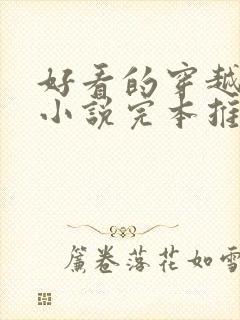 好看的穿越
小说完本推
簾卷落花如雪